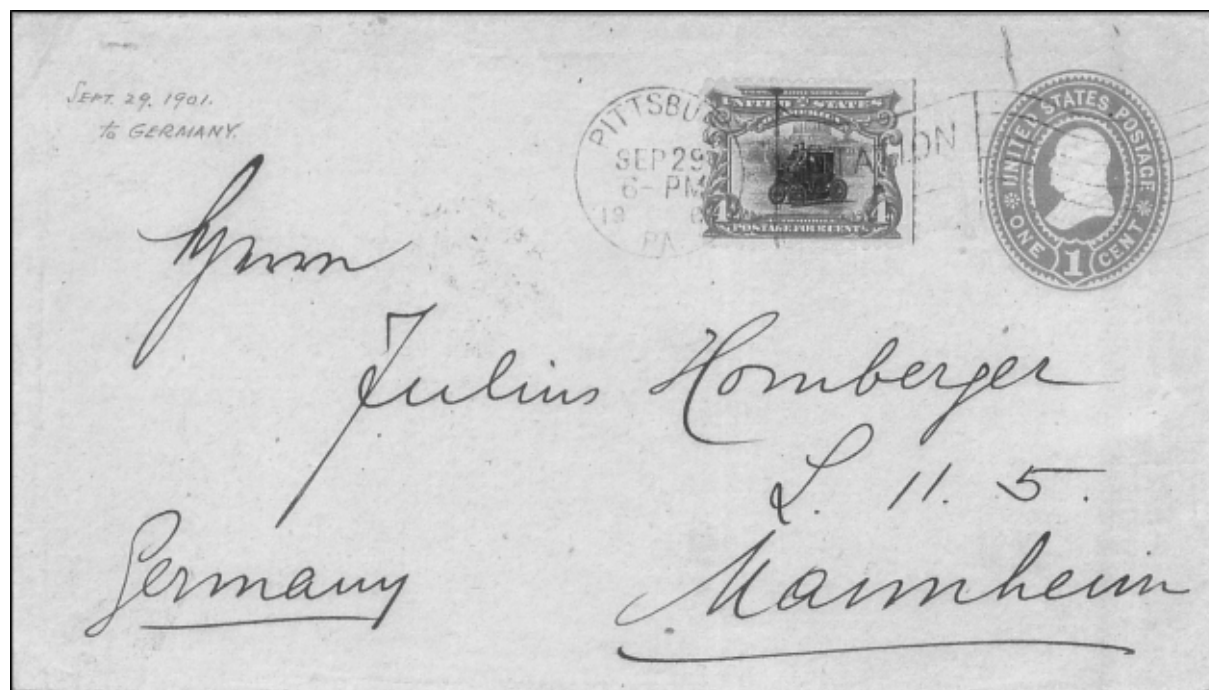 SEPT. 29. 1901.
to GERMANY.
PITTSBU
SEP 29
6 - PM
19
PA
STATION
UNITED STATES
POSTAGE FOUR CENTS
4 4
UNITED STATES POSTAGE
ONE 1 CENT
Herrn
Julius Homberger
L. 11. 5.
Mannheim
Germany